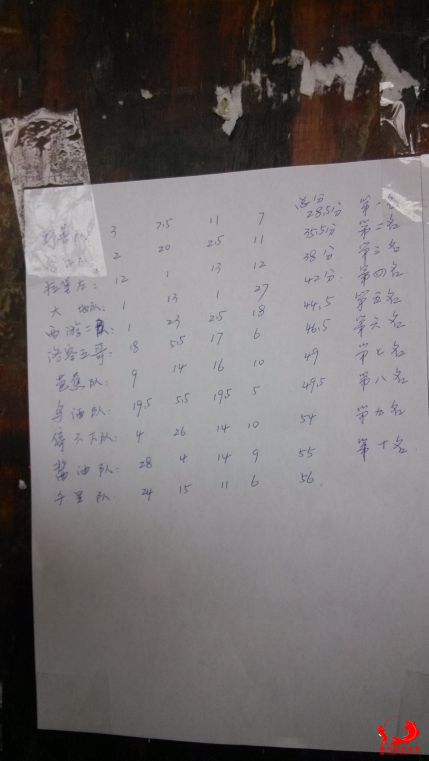 总分
3 7.5 11 7 28.5分 第一名
队 2 20 2.5 11 35.5分 第二名
12 1 13 12 38分 第三名
大 队: 1 13 1 27 42分 第四名
西游二队: 1 23 2.5 18 44.5 第五名
三哥: 18 5.5 17 6 46.5 第六名
芭蕉队 9 14 16 10 49 第七名
队: 19.5 5.5 19.5 5 49.5 第八名
停不下队: 4 26 14 10 54 第九名
酱油队: 28 4 14 9 55 第十名
队 24 15 11 6 56.